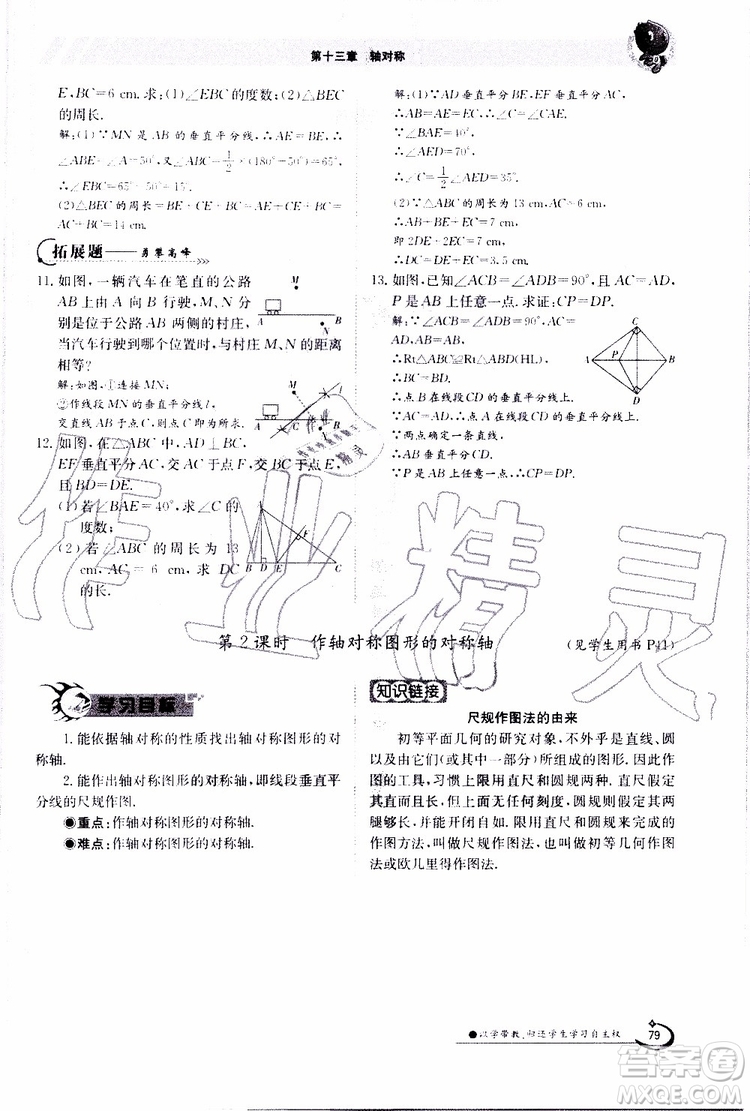 第十三章 轴对称
E,BC=6 cm.求:(1)∠EBC的度数;(2)△BEC
的周长.
解:(1)∵MN是AB的垂直平分线,∴AE=BE,∴
∠ABE=∠A=50°,又∵∠ABC=1/2×(180°-50°)=65°
∴∠EBC=65°-50°=15°.
(2)△BEC的周长=BE+CE+BC=AE+CE+BC=
AC+BC
拓展题——勇攀高峰
11.如图,一辆汽车在笔直的公路
AB上由A向B行驶,M、N分
别是位于公路AB两侧的村庄,
当汽车行驶到哪个位置时,与村庄M、N的距离
相等?
解:如图:①连接MN;
②作线段MN的垂直平分线l,
交直线AB于点C,则点C即为所求.
12.如图,在△ABC中,AD⊥BC,
EF垂直平分AC,交AC于点F,交BC于点E,
且BD=DE.
(1)若∠BAE=40°,求∠C的
度数;
(2)若△ABC的周长为13
cm,AC=6 cm,求DC
的长.
解:(1)∵AD垂直平分BE,EF垂直平分AC,
∴AB=AE=CE.
∵∠BAE=40°,
∴∠AED=70°,
∴∠C=1/2∠AED=35°
(2)∵△ABC的周长为13 cm,AC=6 cm,
∴AB+BE+EC=7 cm,
即2DE+2EC=7 cm,
∴DC=DE+EC=3.5 cm.
13.如图,已知∠ACB=∠ADB=90°,AC=AD,
P是AB上任意一点.求证:CP=DP.
解:∵∠ACB=∠ADB=90°,
∴Rt△ACB≌Rt△ADB(HL),
∴BC=BD,
∴点B在线段CD的垂直平分线上.
∵AC=AD,
∴点A在线段CD的垂直平分线上.
∵两点确定一条直线,
∴AB是线段CD的垂直平分线.
∵P是AB上任意一点,
∴CP=DP.
M
A
B
N
A
C
B
l
A
F
B
D
E
C
C
A
P
B
D
作业精灵
第2课时 作轴对称图形的对称轴 (见学生用书P41)
学习目标
1.能依据轴对称的性质找出轴对称图形的对
称轴.
2.能作出轴对称图形的对称轴,即线段垂直平
分线的尺规作图.
●重点:作轴对称图形的对称轴.
●难点:作轴对称图形的对称轴.
知识链接
尺规作图法的由来
初等平面几何的研究对象,不外乎是直线、圆
以及由它们(或其中一部分)所组成的图形.因此,作
图的工具,习惯上限用直尺和圆规两种.直尺假定
其直而长,但无任何刻度,圆规则假定其两
腿足够长并能开闭自如.限用直尺和圆规的
作图法,叫做尺规作图法,也叫做初等几何作图
法或欧几里得作图法.
●以学带教,归还学生学习自主权
79
答案圈
MXQE.COM